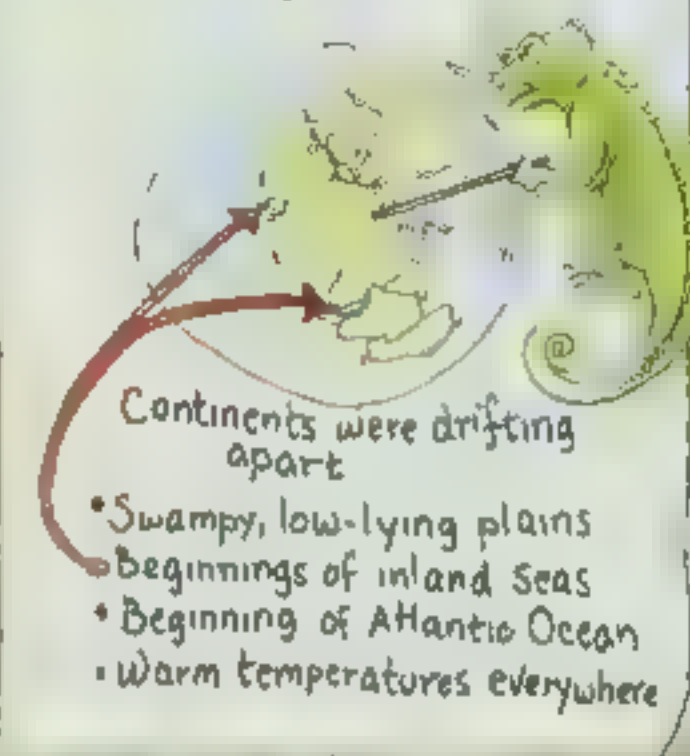 Continents were drifting
apart
• Swampy, low-lying plains
• Beginnings of inland seas
• Beginning of Atlantic Ocean
• Warm temperatures everywhere